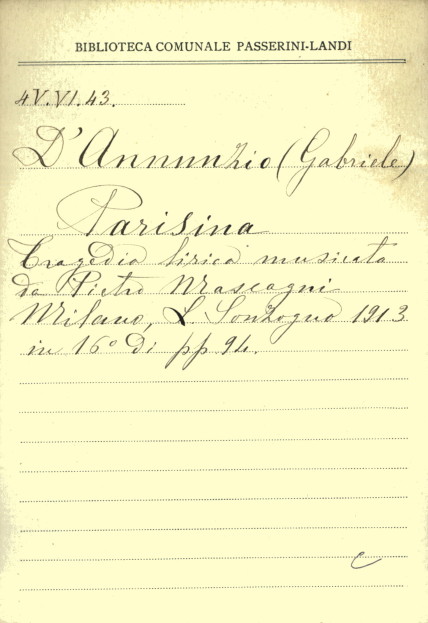 BIBLIOTECA COMUNALE PASSERINI-LANDI
4V.VI.43.
D'Annunzio (Gabriele)
Parisina
Tragedia lirica musicata
da Pietro Mascagni
Milano, L. Sonzogno 1913
in 16° di pp 94.
C